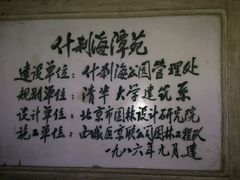 什刹海潭苑
建设单位：什刹海公园管理处
规划单位：清华大学建筑系
设计单位：北京市园林设计研究院
施工单位：西城区京联公司园林工程队
一九八六年九月建